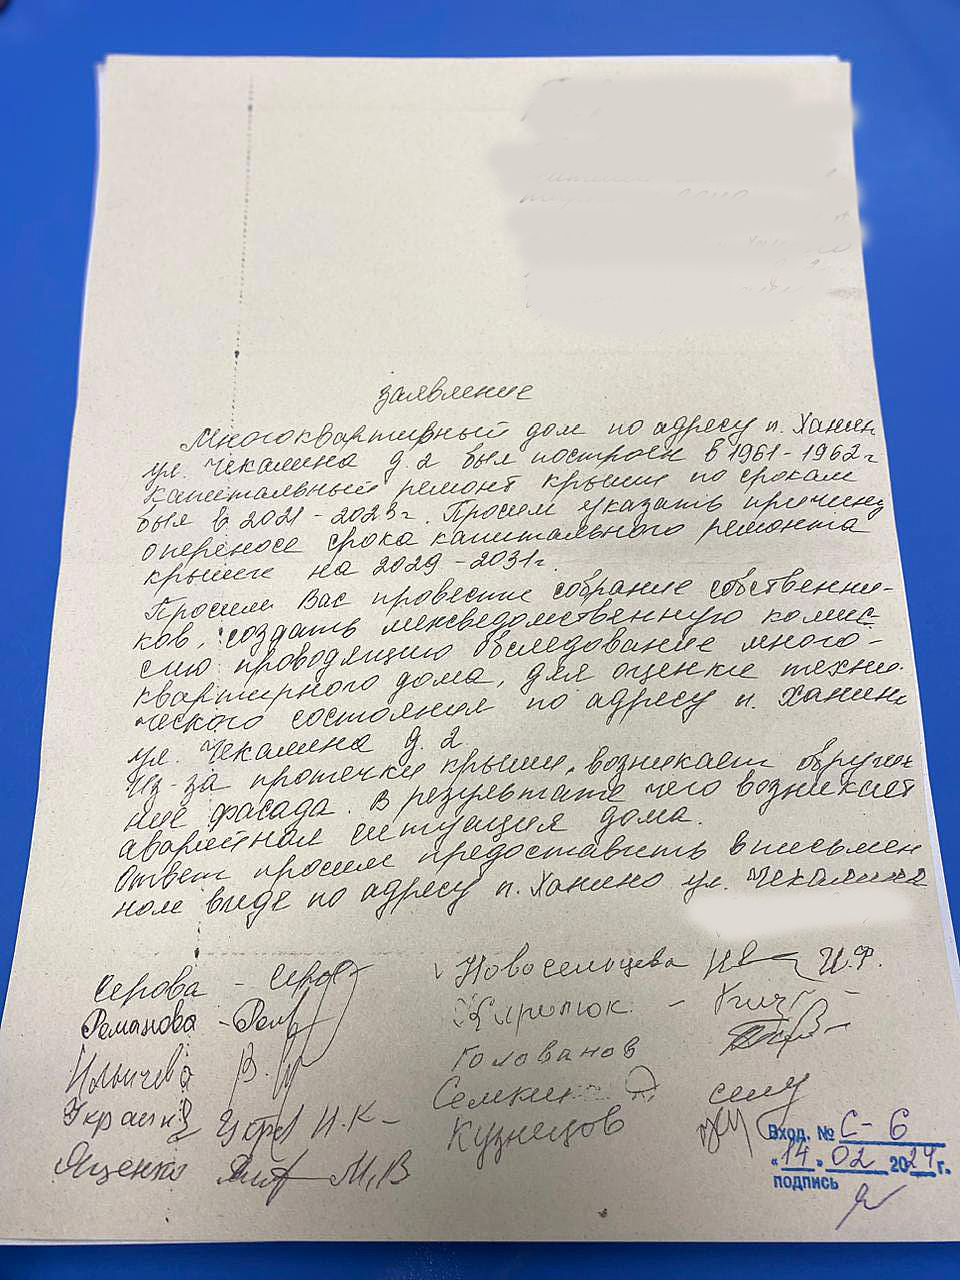 заявление
Многоквартирный дом по адресу п. Ханин
ул. Чекалина д. 2 был построен в 1961-1962 г
Капитальный ремонт крыши по срокам
был в 2021-2023 г. Просим указать причину
о переносе срока капитального ремонта
крыши на 2029-2031 г.
Просим Вас провести собрание собственни-
ков, создать межведомственную комис-
сию проводящию обследование много-
квартирного дома, для оценки техни-
ческого состояния по адресу п. Ханин
ул. Чекалина д. 2
Из-за протечки крыши, возникает обруше
ние фасада. В результате чего возникает
аварийная ситуация дома.
Ответ просим предоставить в письмен
ном виде по адресу п. Ханино ул. Чекалина
Серова -
Романова -
Ильичева В.
Украин И.К-
Яценко М.В
Новосельцева И.Ф.
Кирилюк -
Голованов
Семкина
Кузнецов
Вход. № С-6
"14" 02 2024 г.
подпись